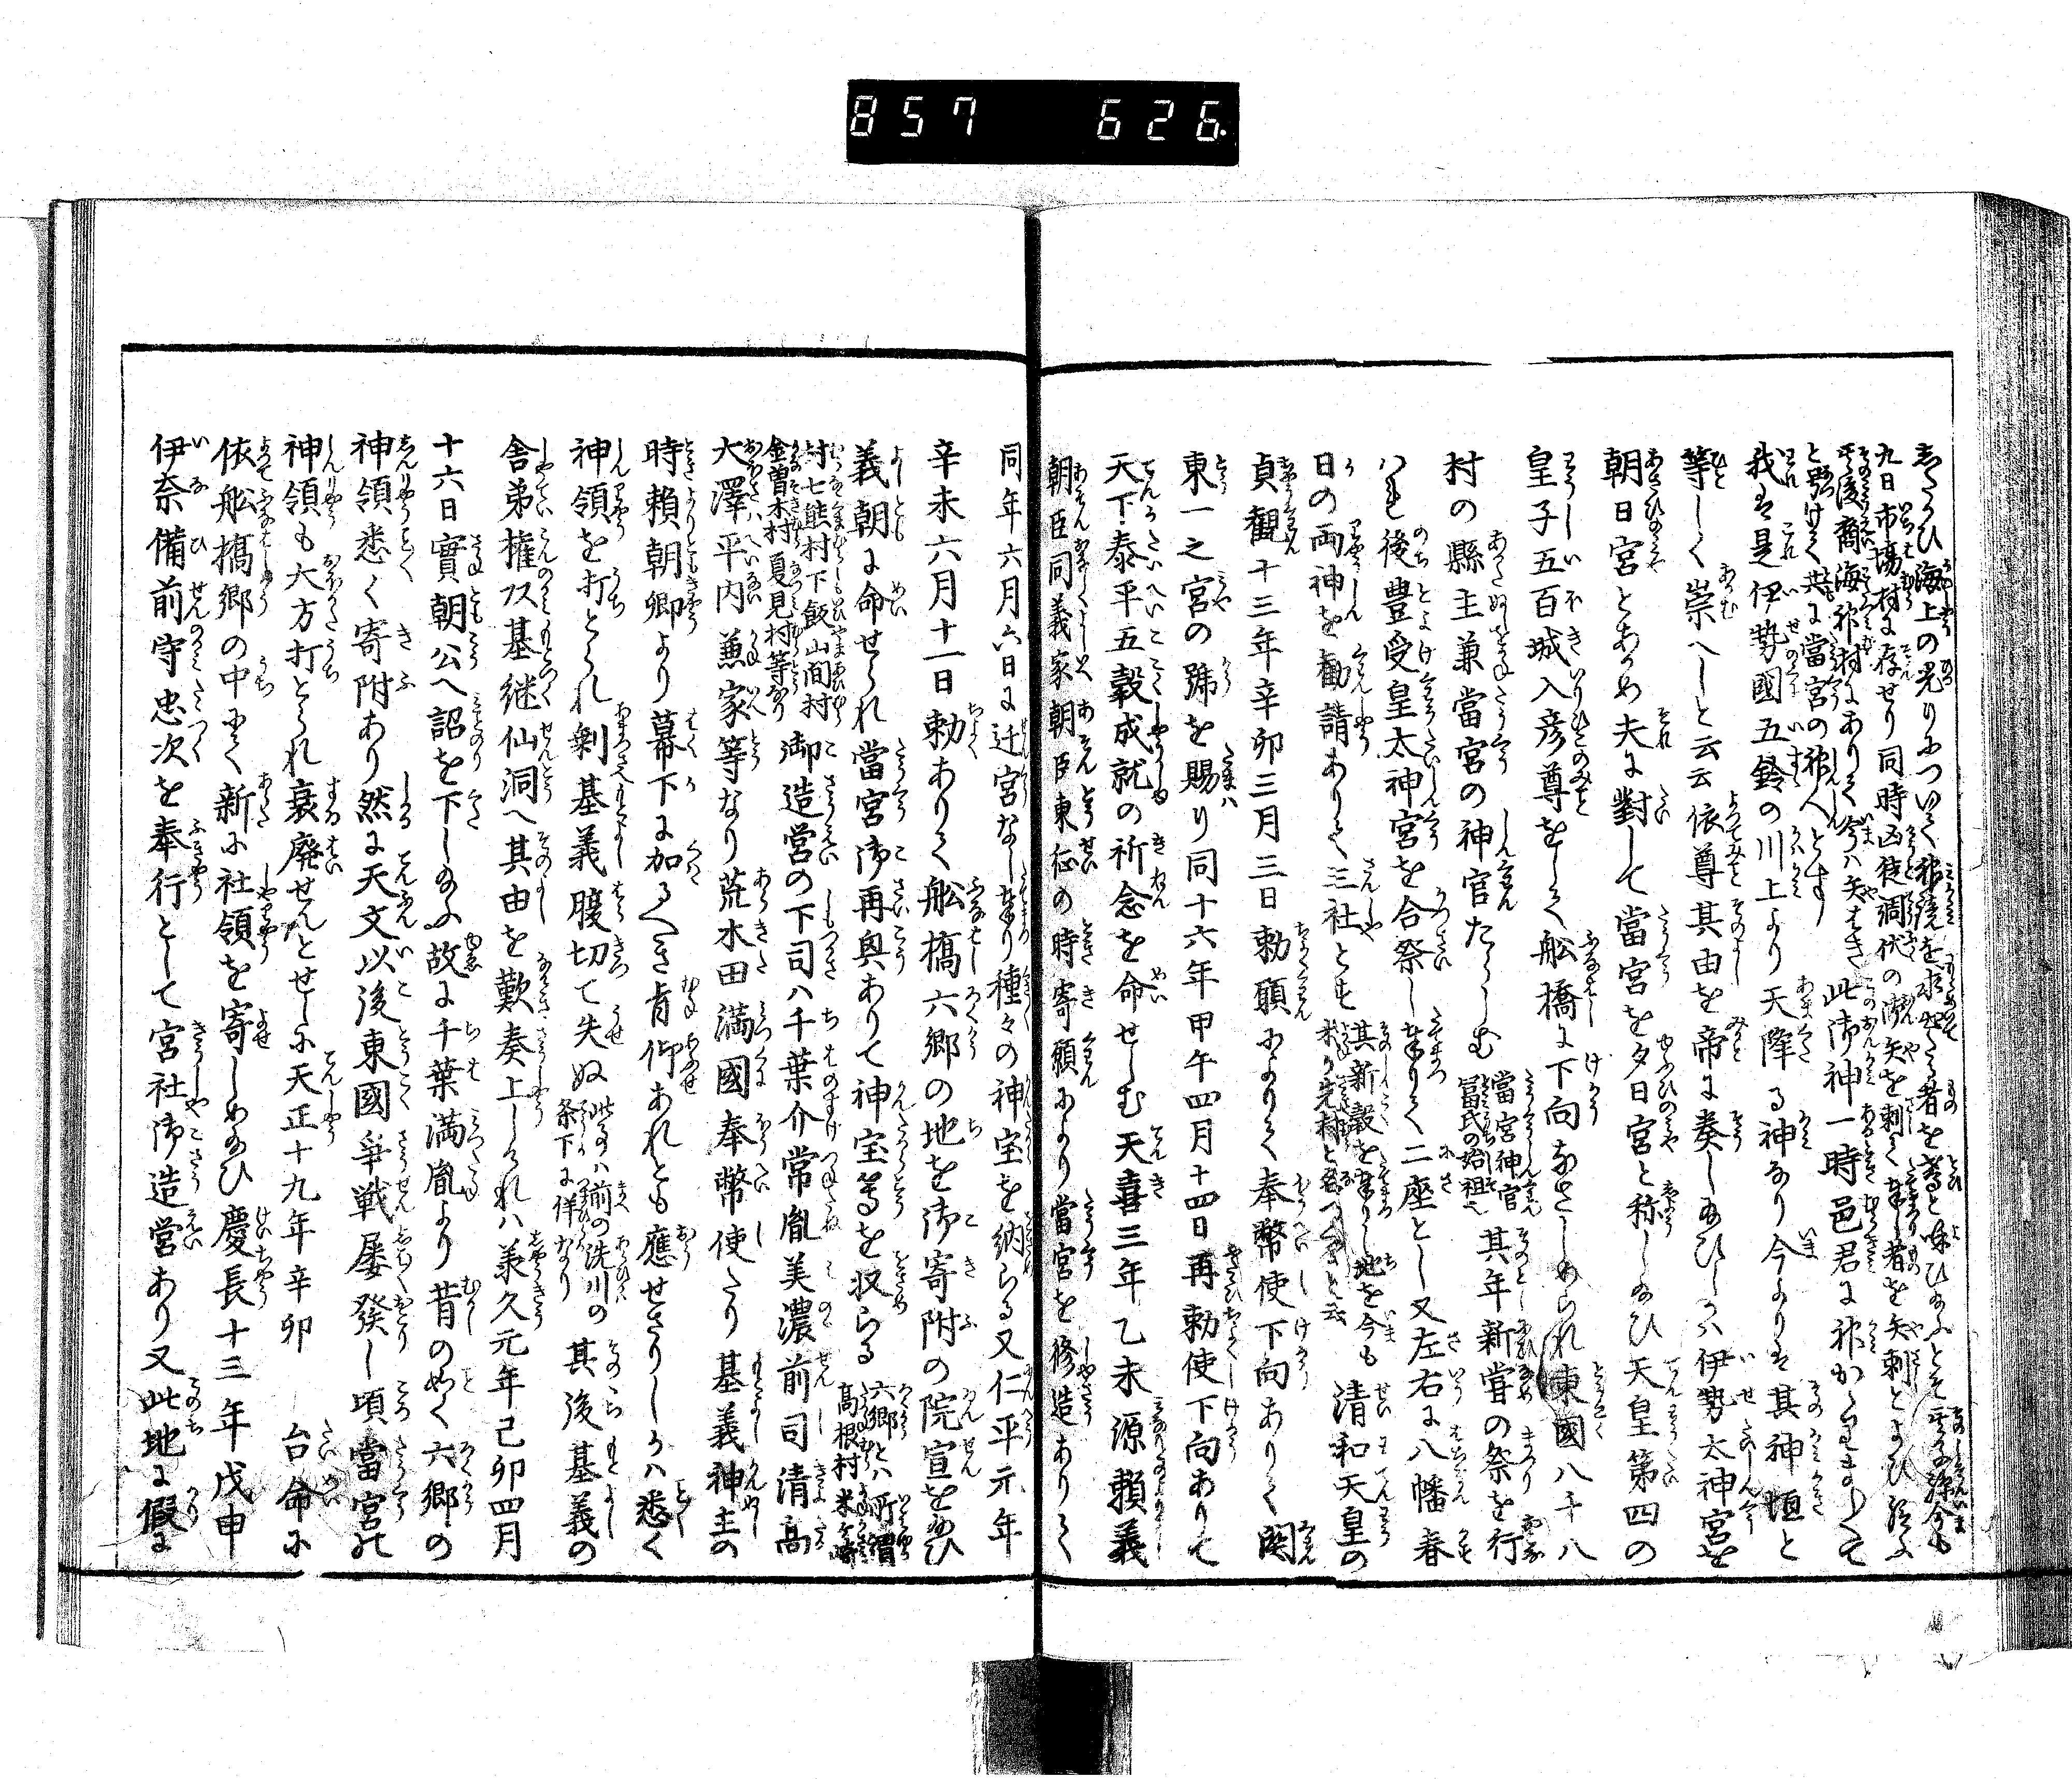 857 626
九日市場村に存せり同時凶徒調伏の御矢を刺て奉し者を矢刺とよひ給ふ
我は是伊勢國五鈴の川上より天降る神なり今よりは其神垣と
等しく崇へしと云云依尊其由を帝に奏し給ひしかは伊勢太神宮を
朝日宮とあかめ夫に對して當宮を夕日宮と称し給ひ天皇第四の
皇子五百城入彦尊をして舩橋に下向なさしめられ東國八十八
村の縣主兼當宮の神官たらしむ
當宮神官
冨氏の始祖也
其年新嘗の祭を行
はれ後豊受皇太神宮を合祭し奉りて二座とし又左右に八幡春
日の両神を勧請ありて三社とす
其新穀を奉りし地を今も
清和天皇の
貞觀十三年辛卯三月三日勅願によりて奉幣使下向ありて関
東一之宮の號を賜り同十六年甲午四月十四日再勅使下向ありて
天下泰平五穀成就の祈念を命せしむ天喜三年乙未源頼義
朝臣同義家朝臣東征の時寄願により當宮を修造ありて
同年六月六日に迁宮なし奉り種々の神宝を納らる又仁平元年
辛未六月十一日勅ありて舩橋六郷の地を御寄附の院宣を給ひ
義朝に命せられ當宮御再興ありて神宝等を収らる
六郷とハ所謂
高根村米ヶ崎
村七熊村下飯山間村
金曽木村夏見村等なり
御造営の下司ハ千葉介常胤美濃前司清高
大澤平内兼家等なり荒木田満國奉幣使たり基義神主の
時頼朝卿より幕下に加るへき旨仰あれとも應せさりしかハ悉く
神領を打とられ剰基義腹切て失ぬ
此事ハ前の洗川の
条下に詳なり
其後基義の
舎弟権頭基継仙洞へ其由を歎奏上しけれハ承久元年己卯四月
十六日實朝公へ詔を下し給ふ故に千葉満胤より昔の如く六郷の
神領悉く寄附あり然に天文以後東國争戦屡發し頃當宮の
神領も大方打とられ衰廃せんとせしに天正十九年辛卯　台命に
依舩橋郷の中にて新に社領を寄しめ給ひ慶長十三年戊申
伊奈備前守忠次を奉行として宮社御造営あり又此地に假に